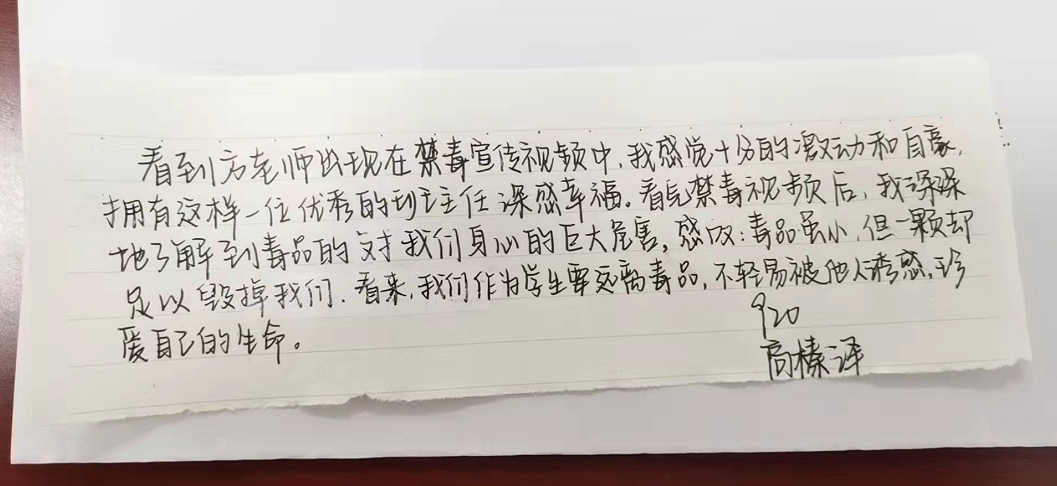 看到方老师出现在禁毒宣传视频中,我感觉十分的激动和自豪,
拥有这样一位优秀的班主任深感幸福。看完禁毒视频后,我深深
地了解到毒品的对我们身心的巨大危害,感叹:毒品虽小,但一颗却
足以毁掉我们.看来,我们作为学生要远离毒品,不轻易被他人诱惑,珍
爱自己的生命。
920
商榛译